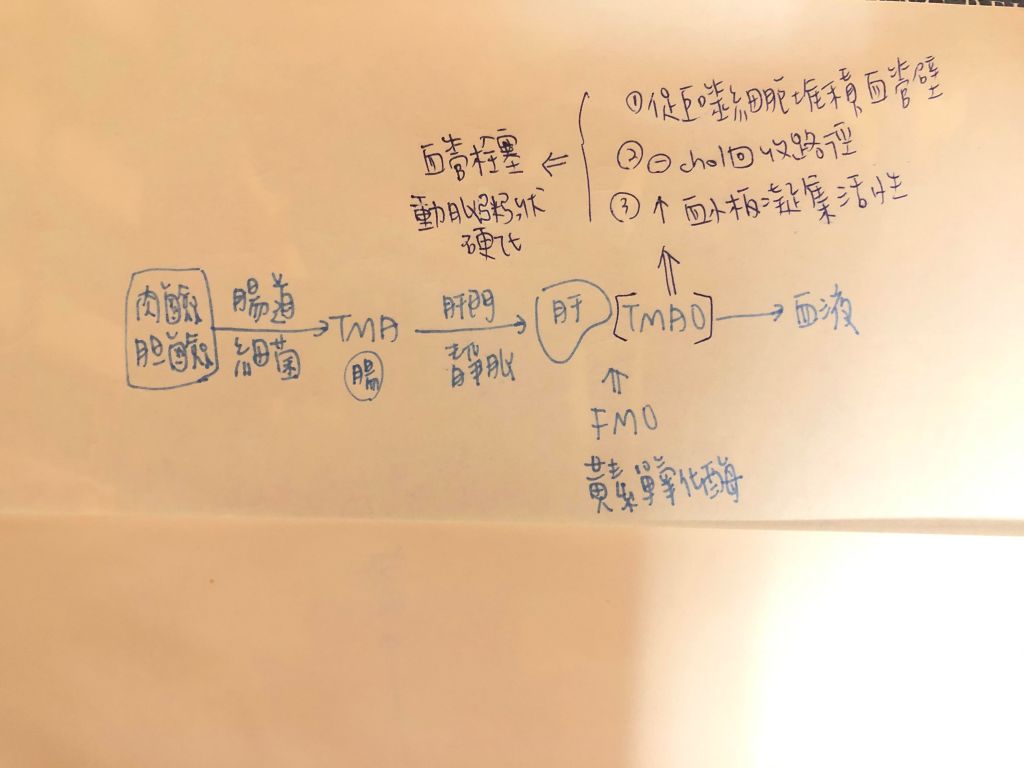 ①促巨噬細胞堆積血管壁
②⊖chol回收路徑
③↑血小板凝集活性
血管栓塞 ⇐
動脈粥狀
硬化
肉鹼 腸道 肝門 肝 [TMAO] → 血液
膽鹼 細菌 → TMA 靜脈 →
腸
FMO
黃素單氧化酶